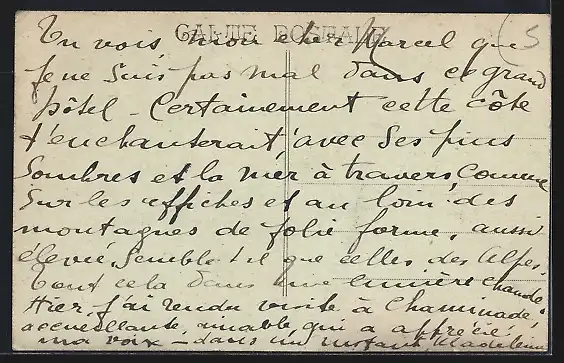 CARTE POSTALE
5
Tu vois, mon cher Marcel que
je ne suis pas mal dans ce grand
hôtel - Certainement cette côte
t'enchanterait, avec ses pins
sombres et la mer à travers, comme
sur les affiches et au loin des
montagnes de jolie forme, aussi
élevée, semble t'il que celles des Alpes.
Tout cela dans une lumière chaude.
Hier, j'ai rendu visite à Chaminade,
accueillante, aimable, qui a apprécié
ma voix - dans un